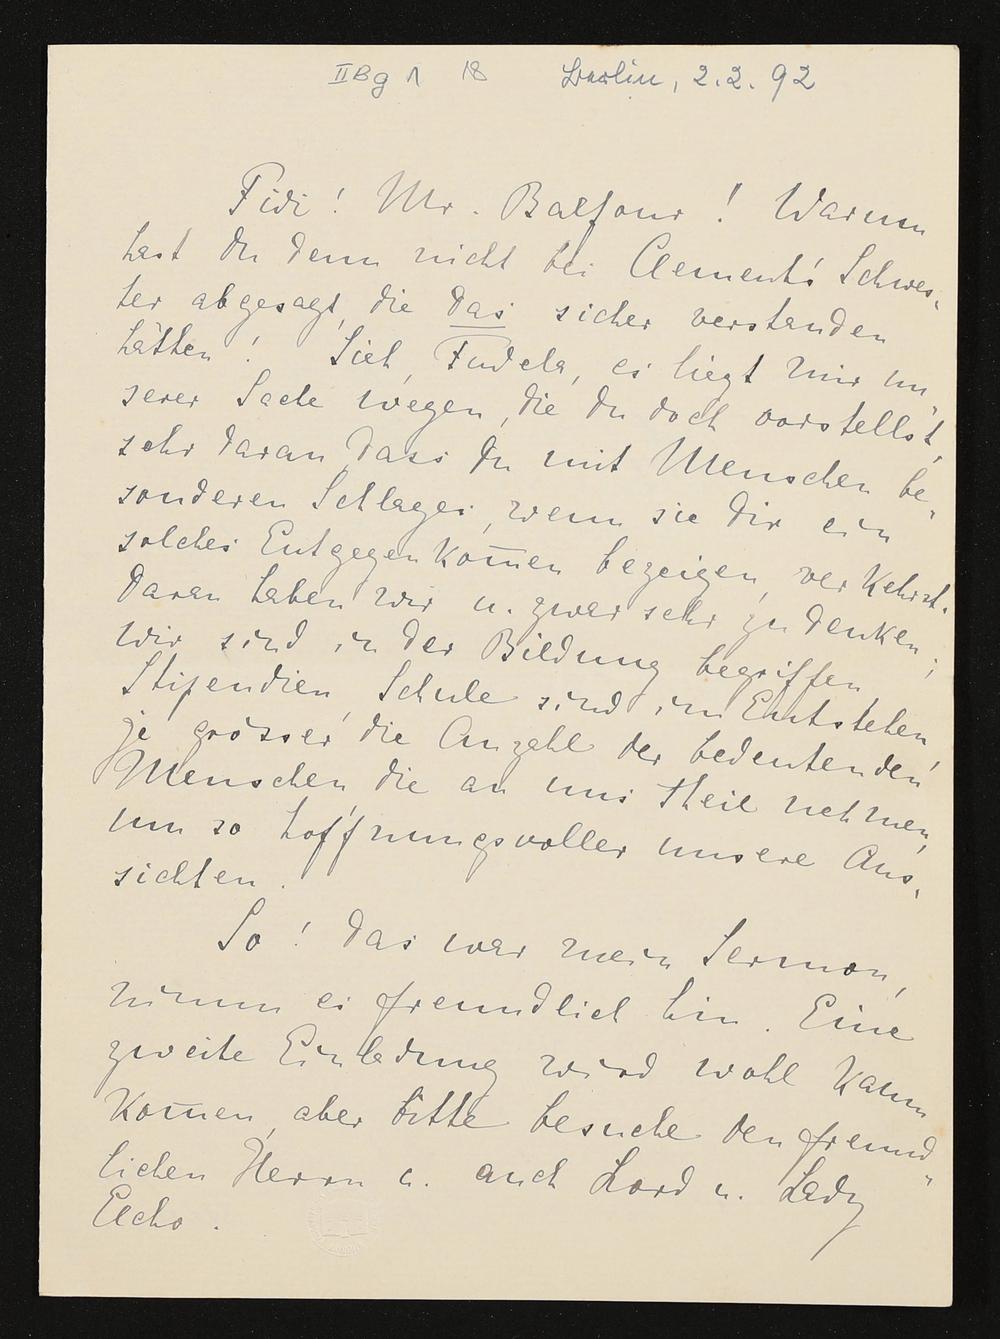 II Bg 1 18 Berlin, 2.2.92
Fidi! Mr. Balfour! Warum
hast du denn nicht bei Clement's Schwes-
ter abgesagt, die das sicher verstanden
hätten! Sieh, Fudela, es liegt mir un-
serer Sache wegen, die du doch vorstellst,
sehr daran dass du mit Menschen be-
sonderen Schlages, wenn sie dir ein
solches Entgegenkom̅en bezeigen, verkehrst.
Daran haben wir u. zwar sehr zu denken;
wir sind in der Bildung begriffen,
Stipendien, Schule sind im Entstehen,
je grösser die Anzahl der bedeutenden
Menschen die an uns theil nehmen,
um so hoffnungsvoller unsere Aus-
sichten.
So! das war mein Sermon,
nimm es freundlich hin. Eine
zweite Einladung wird wohl kaum
kom̅en, aber bitte besuche den freund-
lichen Herrn u. auch Lord u. Lady
Elcho.